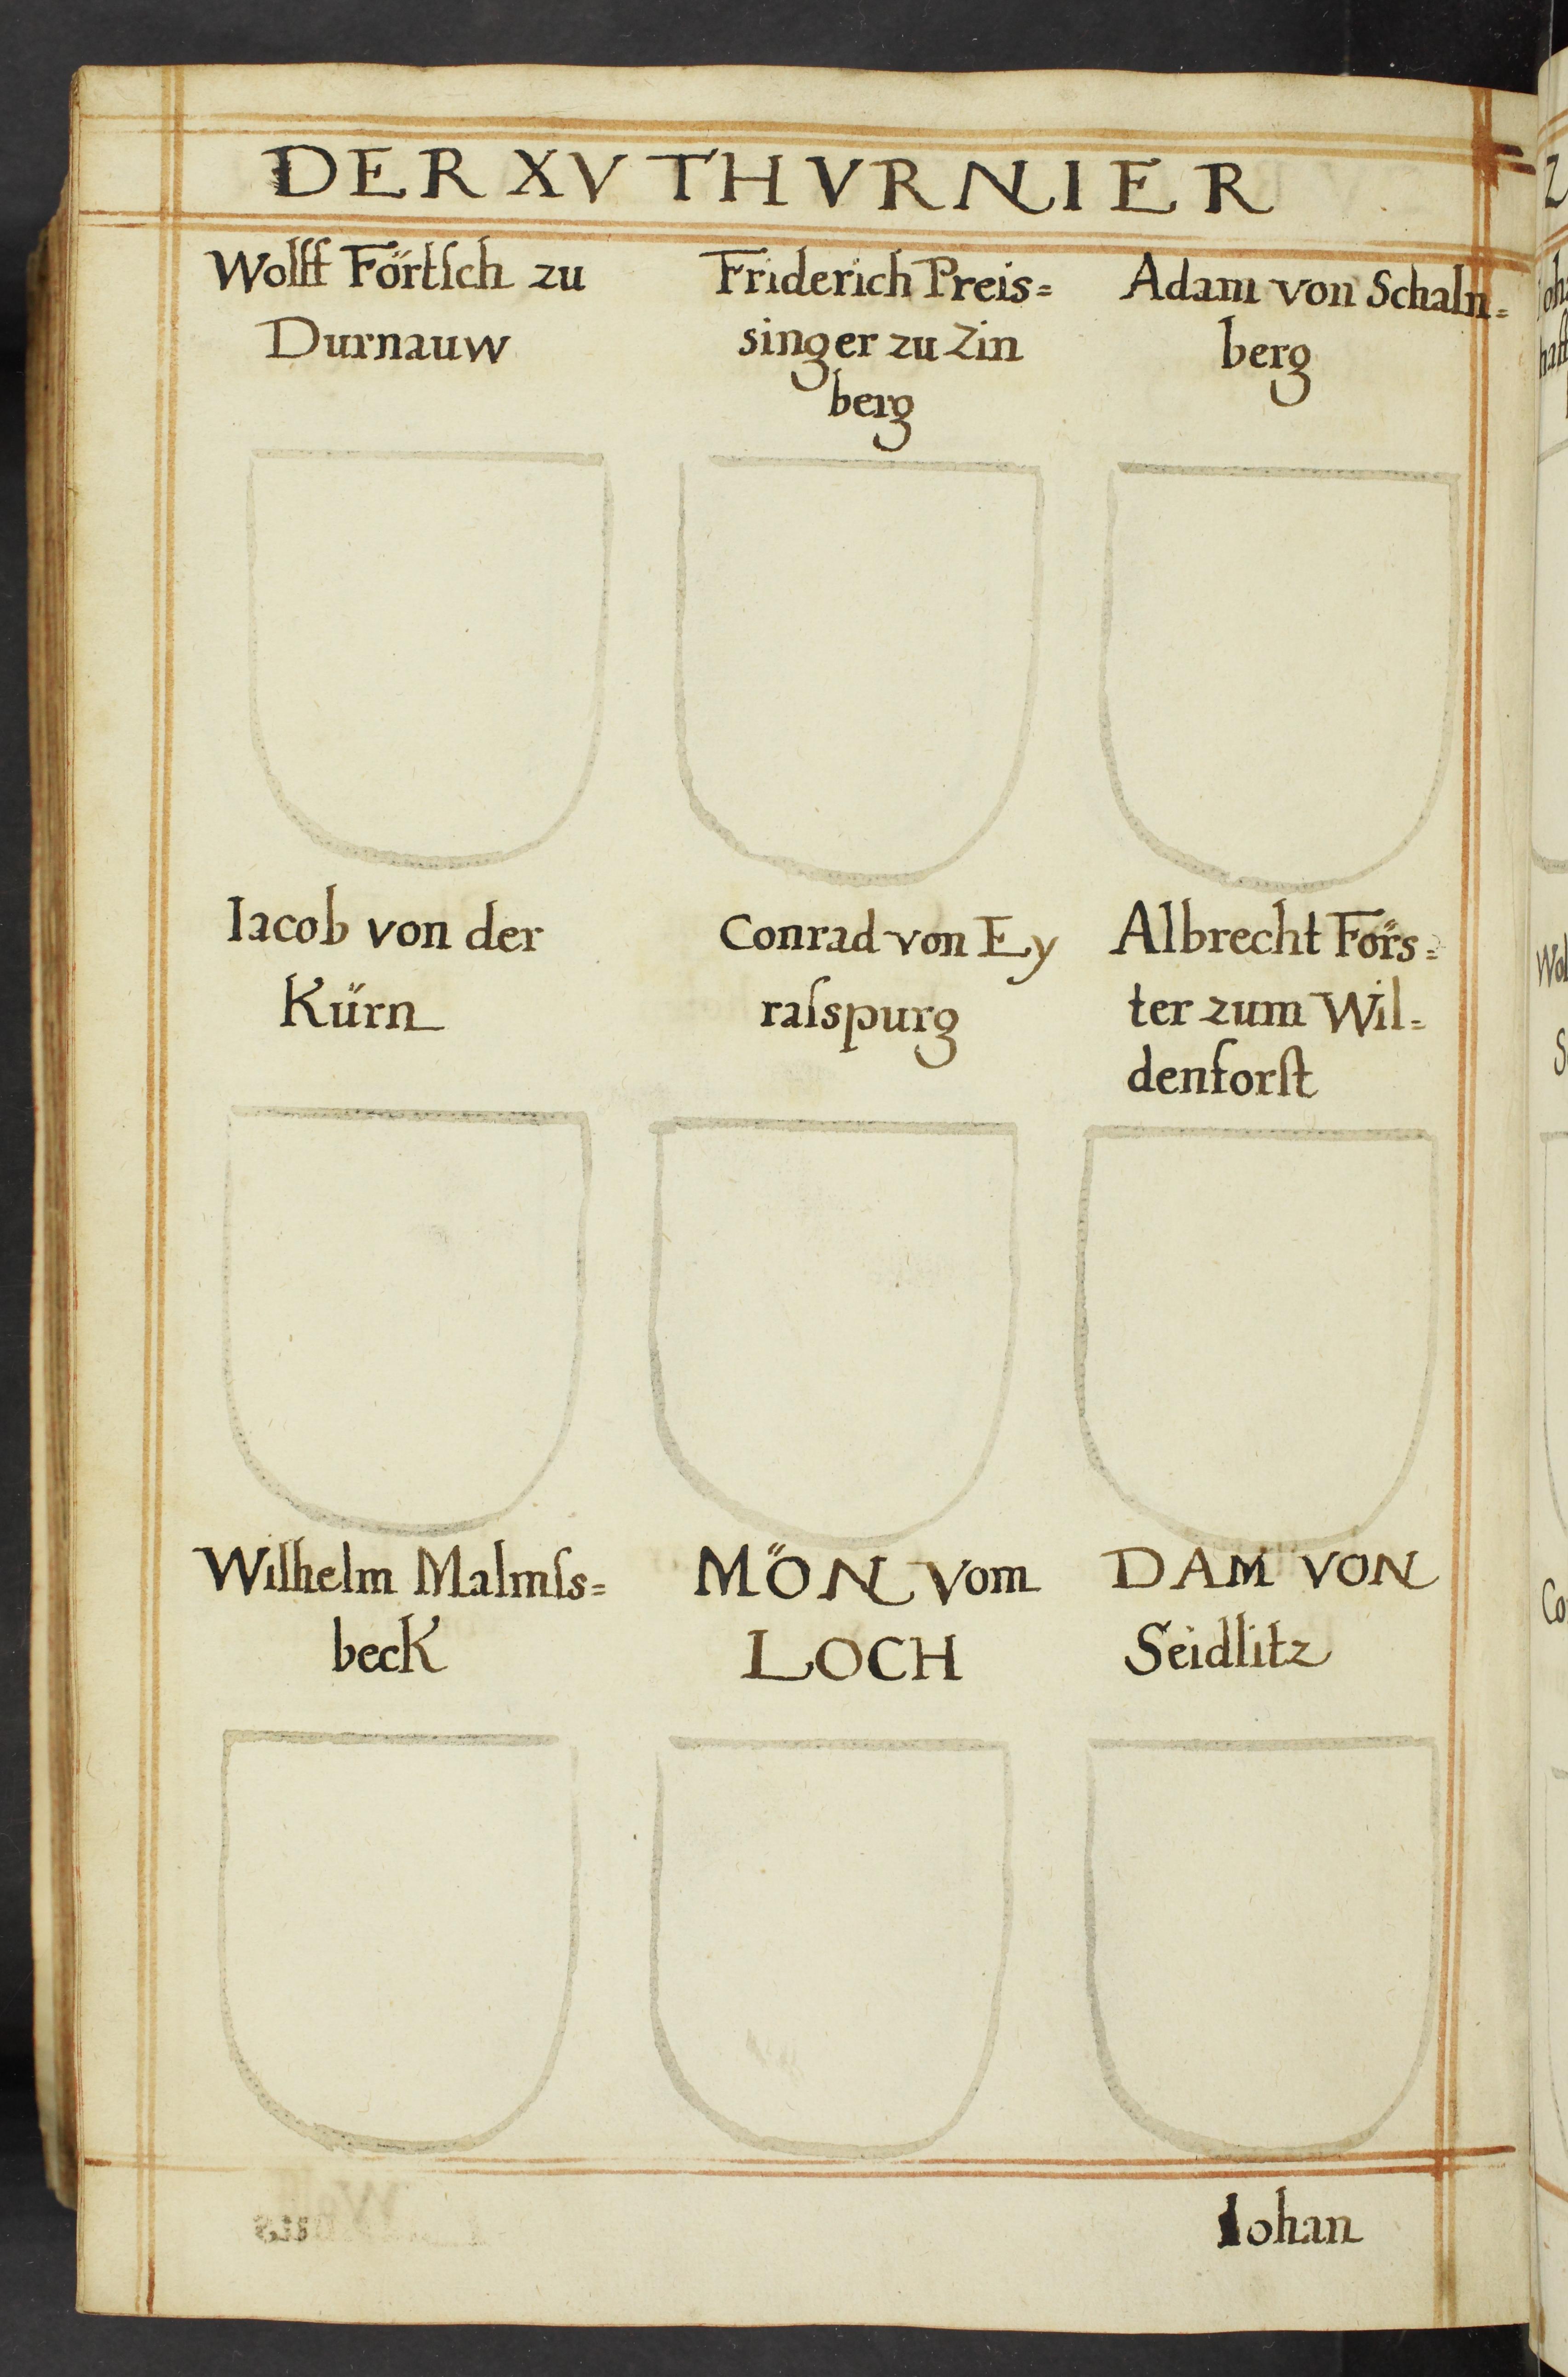 DER XV THVRNIER
Wolff Förtſch zu
Durnauw
Friderich Preis=
singer zu Zin
berg
Adam von Schaln=
berg
Iacob von der
Kürn
Conrad von Ey
raſspurg
Albrecht Förs=
ter zum Wil=
denforſt
Wilhelm Malmſs=
beck
MÖN vom
LOCH
DAM VON
Seidlitz
Iohan